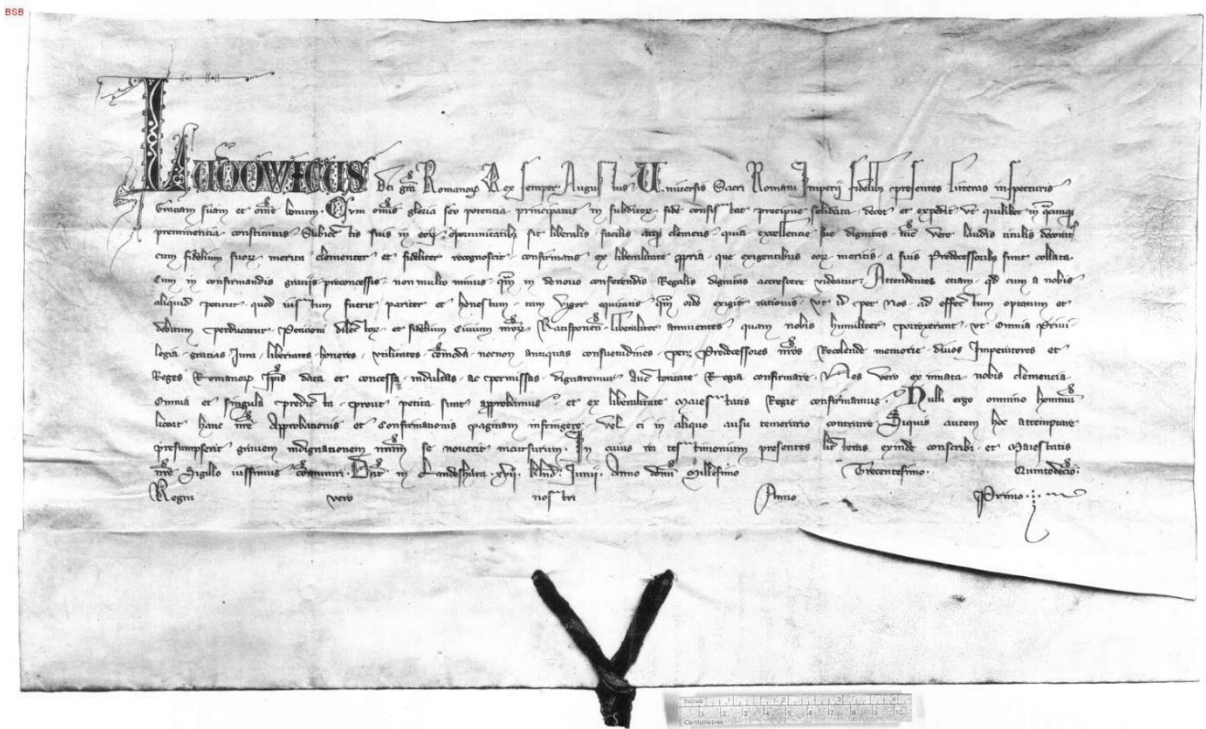 BSB
LUDOWICUS Dei gra Romanorꝝ Rex semper Augustus Universis Sacri Romani Imperij fidelibꝫ presentes litteras inspecturis
Graciam suam et omne bonum. Cum omnis gloria seu potencia principatus in subditorꝝ fide consistat precipue solidata decet et expedit ut quilibet in
preeminencia constitutus Subiectis suis in eorꝝ oportunitatibꝫ sit liberalis facilis atqꝫ clemens quia excellencie sue dignitas tunc vero laudis titulis decoratur
cum fidelium suorꝝ merita clementer et fideliter recognoscit confirmans ex liberalitate que exigentibus eorꝝ meritis a suis Predecessoribꝫ sunt collata.
Cum in confirmandis gracijs preconcessis non multo minus quam in denovo conferendis Regalis dignitas accrescere videatur. Attendentes eciam qd cum a nobis
aliquid petitur quod iustum fuerit pariter et honestum tam vigor equitatis quam ordo exigit rationis ut id per Nos ad effectum optatum et
debitum perducatur. Peticioni dilectorꝝ et fidelium Civium nrorꝝ Ratisponen liberaliter annuentes quam nobis humiliter porrexerunt ut Omnia Privi
legia gracias Jura libertates honores utilitates comoda necnon antiquas consuetudines per Predecessores nros Recolende memorie divos Imperatores et
Reges Romanorꝝ Ipis data et concessa indultas ac permissas dignaremur auctoritate Regia confirmare. Nos vero ex innata nobis clemencia
Omnia et singula predicta prout petita sunt approbamus et ex liberalitate Maiestatis Regie confirmamus. Nulli ergo omnino hominum
liceat hanc nre Approbationis et Confirmationis paginam infringere vel ei in aliquo ausu temerario contraire Siquis autem hoc attemptare
presumpserit gravem indignationem nram se noverit incursurum. In cuius rei testimonium presentes litteras exinde conscribi et Maiestatis
nre Sigillo iussimus comuniri. Dat in Landeshuta xvii klnd Junii Anno domi Millesimo Trecentesimo Quintodecio.
Regni vero nostri Anno Primo
Inches 1 2 3 4
Centimetres